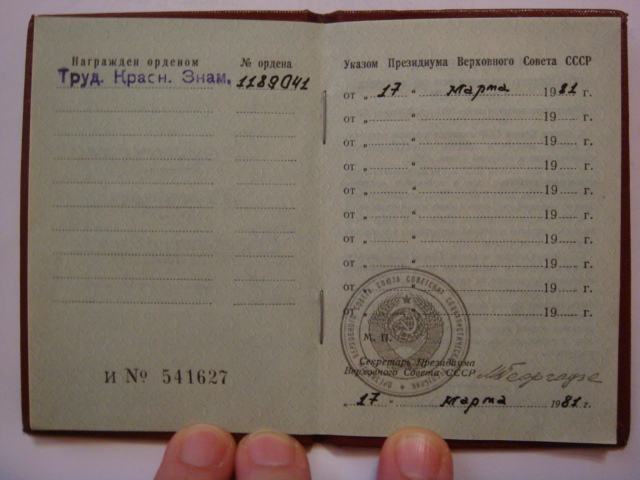 Награжден орденом № ордена
Труд. Красн. Знам. 1189041
И № 541627
Указом Президиума Верховного Совета СССР
от „ 17 “ марта 1981 г.
от „ “ 19 г.
от „ “ 19 г.
от „ “ 19 г.
от „ “ 19 г.
от „ “ 19 г.
от „ “ 19 г.
от „ “ 19 г.
от „ “ 19 г.
от „ “ 19 г.
М. П.
Секретарь Президиума
Верховного Совета СССР МГеоргадзе
„ 17 “ марта 1981 г.